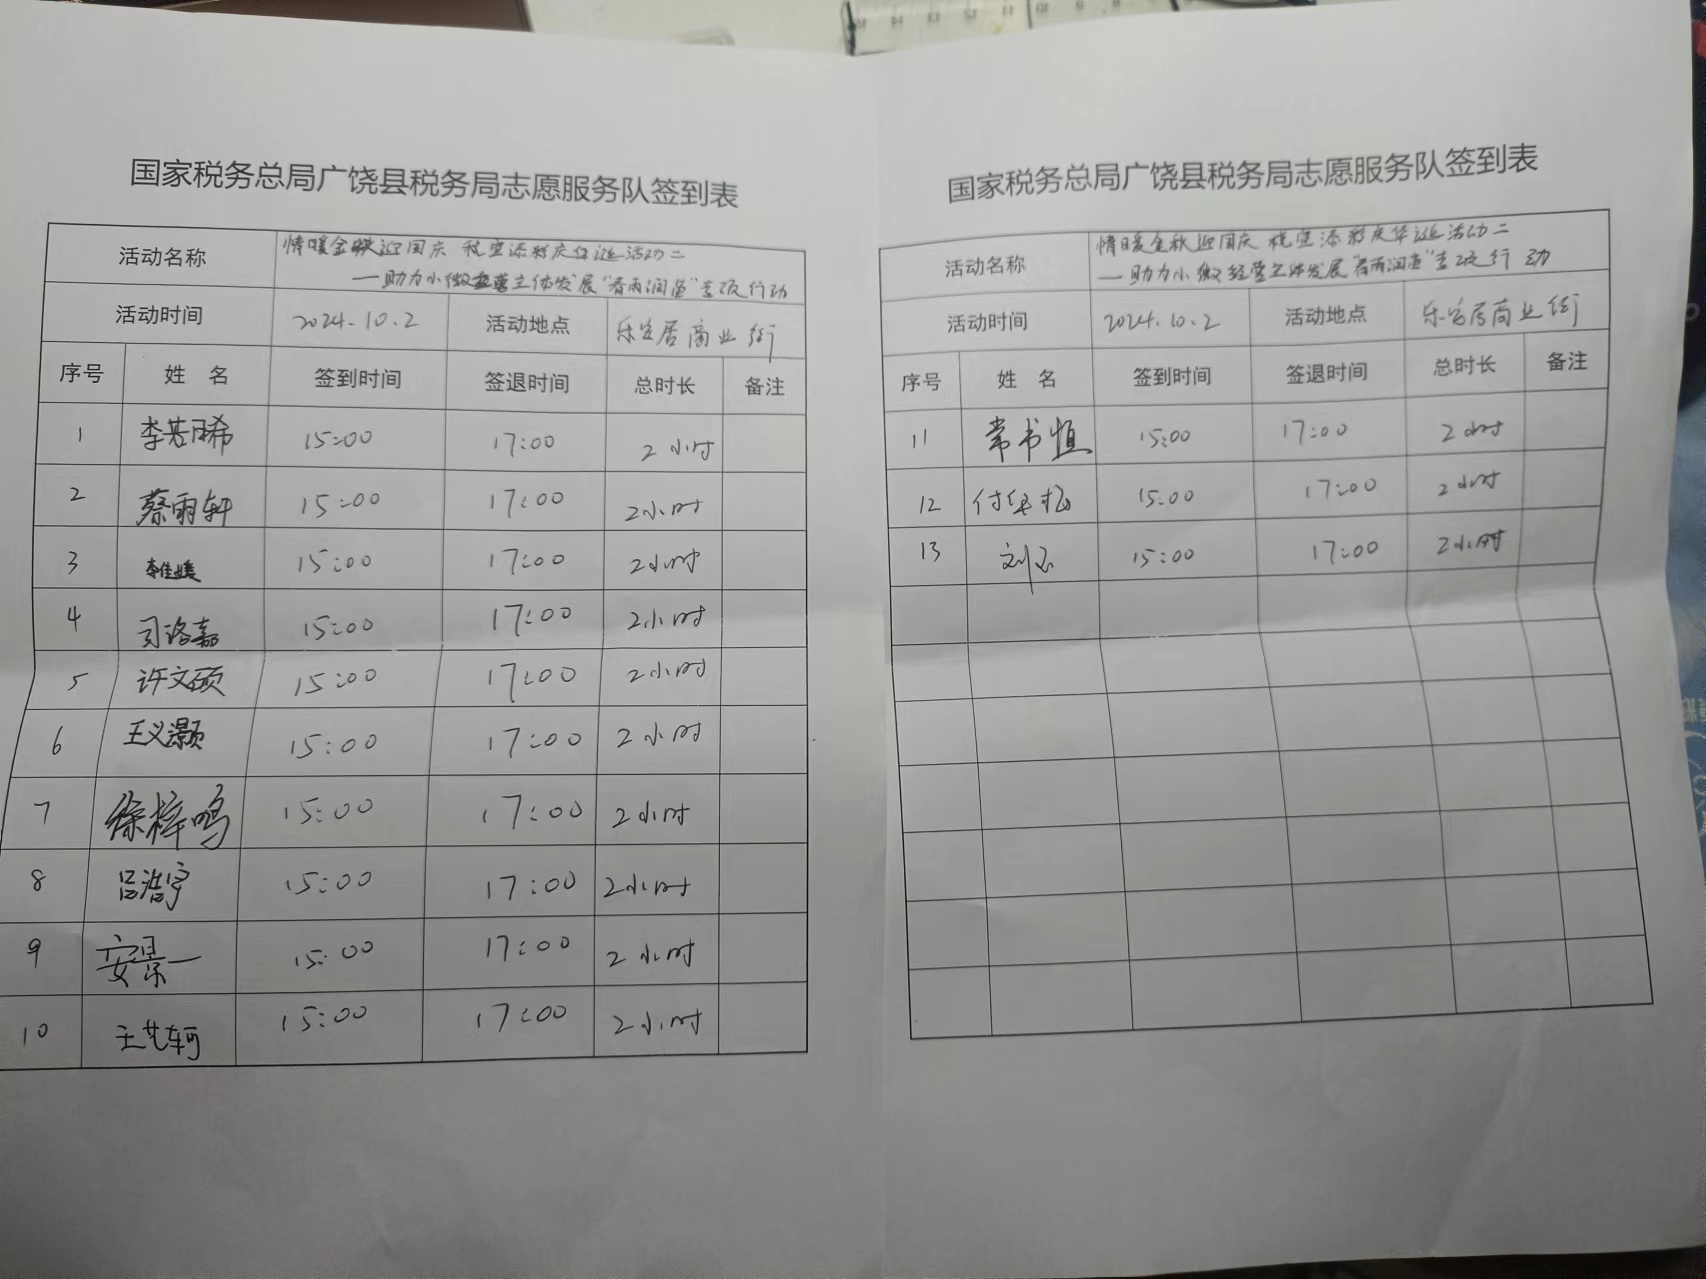 国家税务总局广饶县税务局志愿服务队签到表
活动名称 情暖金秋迎国庆 税宣添彩庆华诞活动二
—助力小微经营主体发展“春雨润苗”专项行动
活动时间 2024.10.2 活动地点 乐安居商业街
序号 姓 名 签到时间 签退时间 总时长 备注
1 15:00 17:00 2小时
2 蔡雨轩 15:00 17:00 2小时
3 李佳媛 15:00 17:00 2小时
4 司洺嘉 15:00 17:00 2小时
5 许文硕 15:00 17:00 2小时
6 王义灏 15:00 17:00 2小时
7 徐梓鸣 15:00 17:00 2小时
8 吕浩宇 15:00 17:00 2小时
9 安景一 15:00 17:00 2小时
10 王艺轲 15:00 17:00 2小时
国家税务总局广饶县税务局志愿服务队签到表
活动名称 情暖金秋迎国庆 税宣添彩庆华诞活动二
—助力小微经营主体发展“春雨润苗”专项行动
活动时间 2024.10.2 活动地点 乐安居商业街
序号 姓 名 签到时间 签退时间 总时长 备注
11 常书恒 15:00 17:00 2小时
12 15:00 17:00 2小时
13 15:00 17:00 2小时